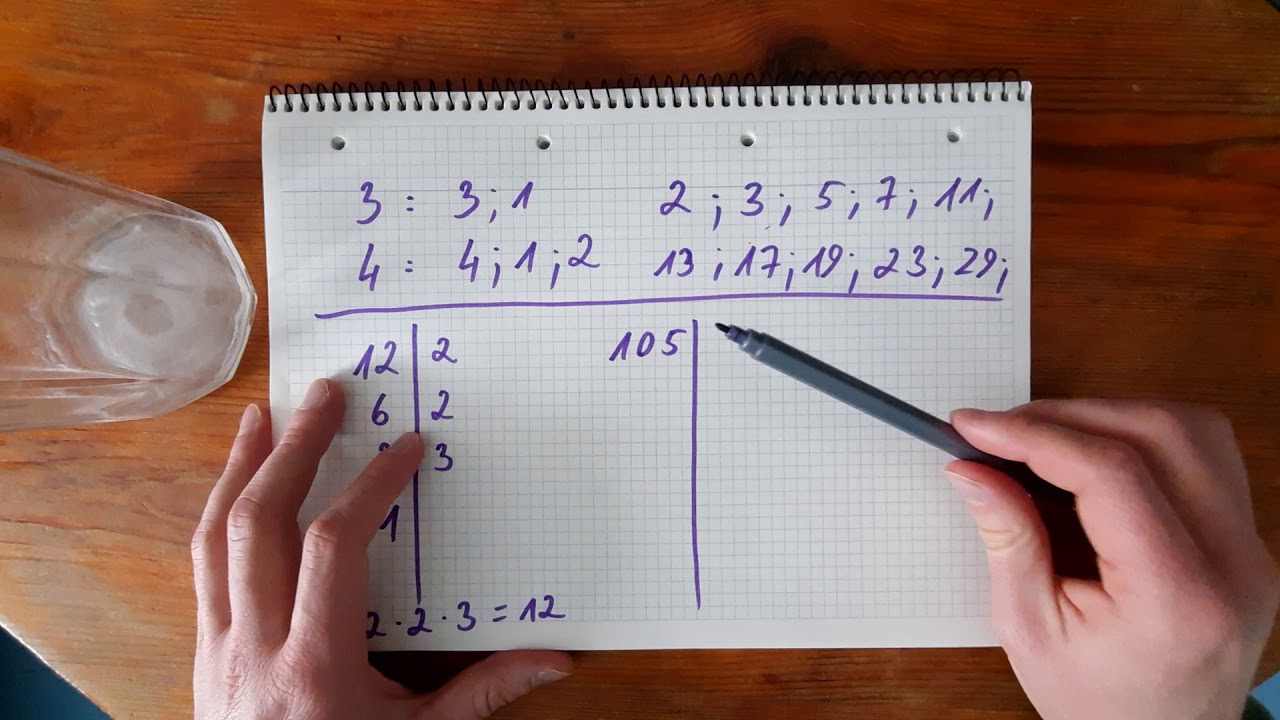 3 : 3 ; 1
4 : 4 ; 1 ; 2
2 ; 3 ; 5 ; 7 ; 11 ;
13 ; 17 ; 19 ; 23 ; 29 ;
12 | 2
6 | 2
3
1
2 · 2 · 3 = 12
105